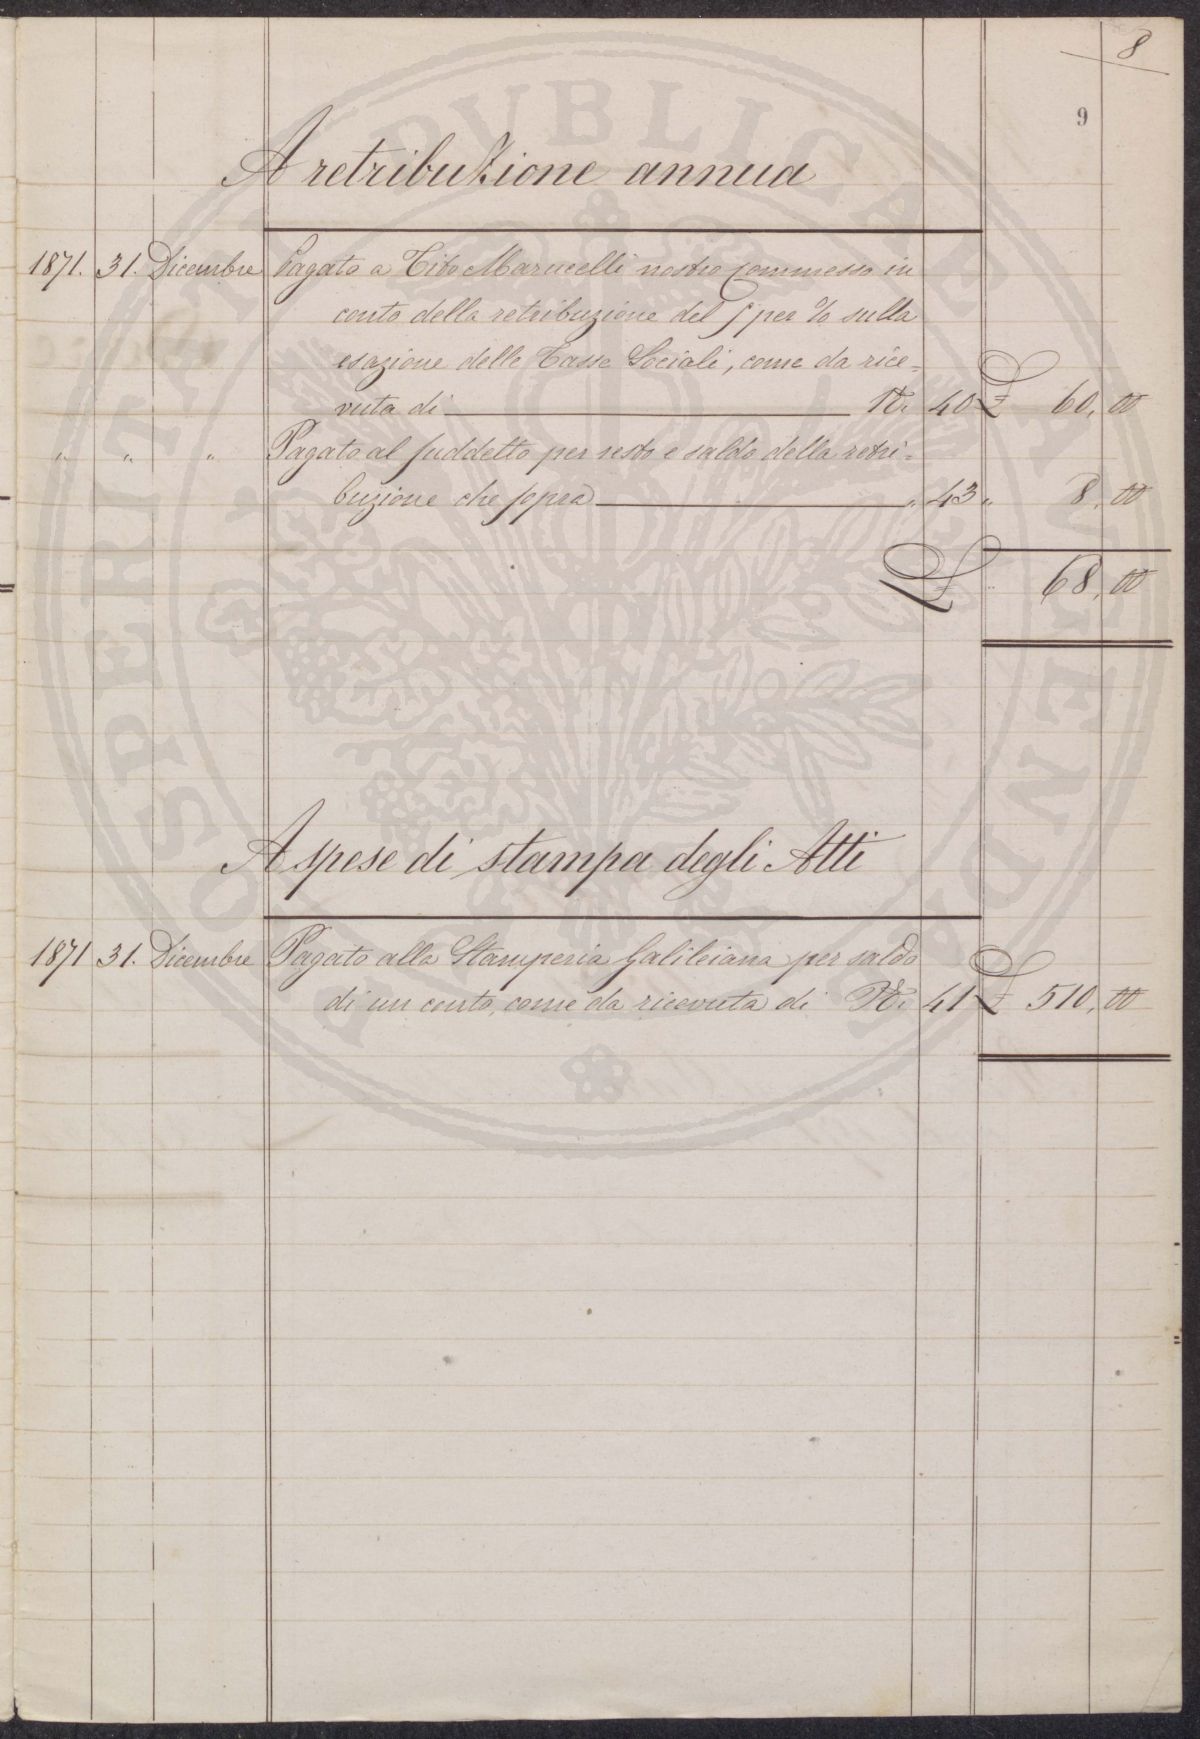 8
9
A retribuzione annua
1871. 31. Dicembre Pagato a Tito Marucelli nostro commesso in
conto della retribuzione del 5 per % sulla
esazione delle Tasse Sociali, come da rice=
vuta di N. 40 £ 60, 00
" " " Pagato al suddetto per resto e saldo della retri=
buzione che sopra " 43 " 8, 00
£ 68, 00
A spese di stampa degli Atti
1871 31. Dicembre Pagato alla Stamperia Galileiana per saldo
di un conto, come da ricevuta di N. 41 £ 510, 00
PROSPERITATI PVBLICAE AVGENDAE